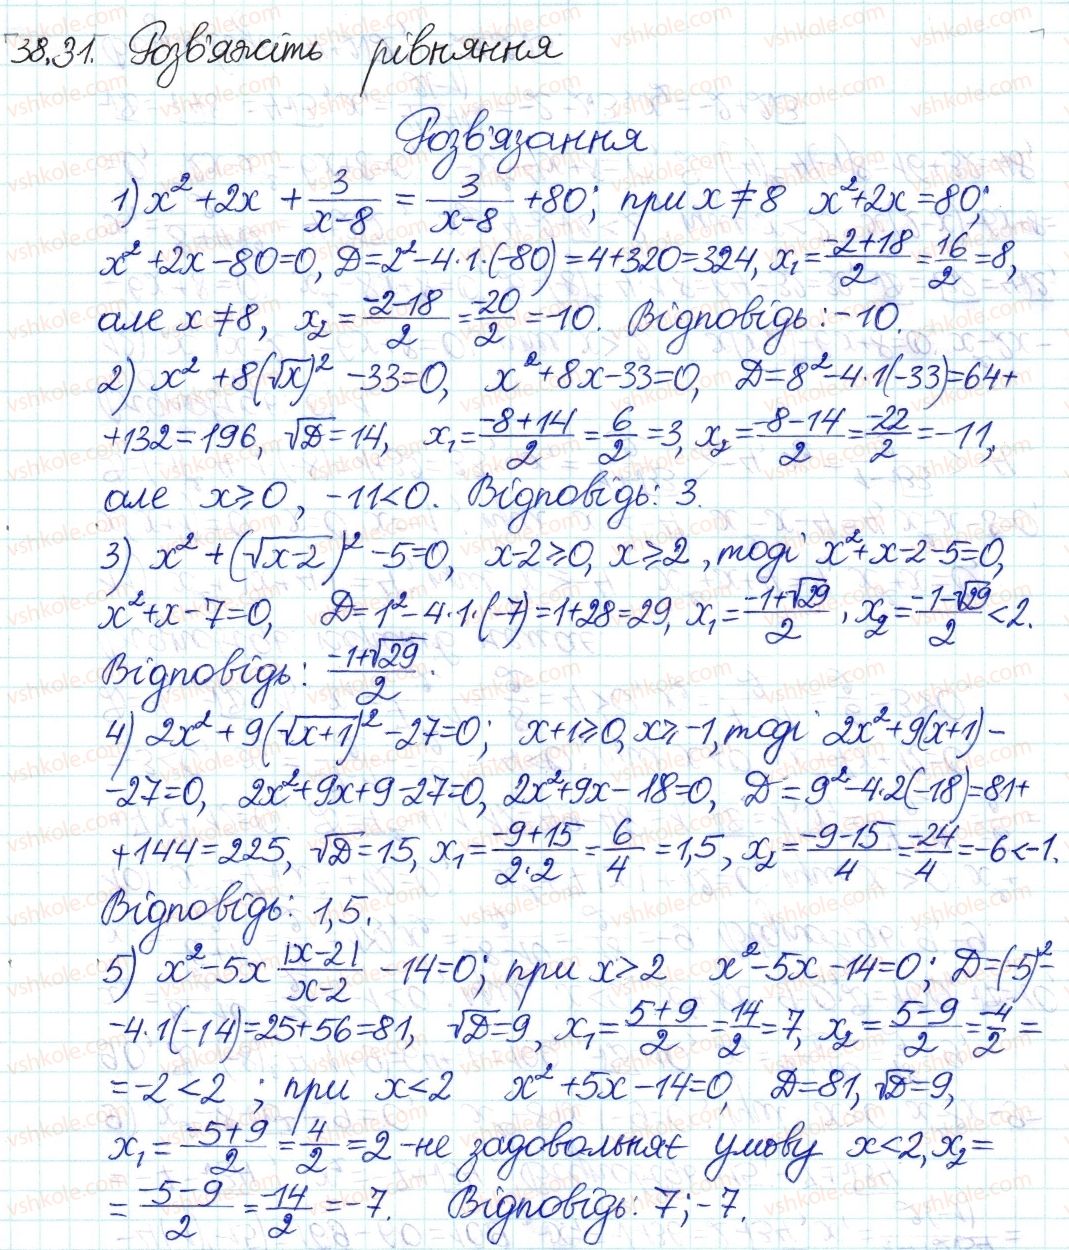 38.31. Розв'яжіть рівняння
Розв'язання
1) x² + 2x + 3/(x-8) = 3/(x-8) + 80; при x ≠ 8 x² + 2x = 80;
x² + 2x - 80 = 0, D = 2² - 4·1·(-80) = 4 + 320 = 324, x₁ = (-2+18)/2 = 16/2 = 8,
але x ≠ 8, x₂ = (-2-18)/2 = -20/2 = -10. Відповідь: -10.
2) x² + 8(√x)² - 33 = 0, x² + 8x - 33 = 0, D = 8² - 4·1(-33) = 64 +
+ 132 = 196, √D = 14, x₁ = (-8+14)/2 = 6/2 = 3, x₂ = (-8-14)/2 = -22/2 = -11,
але x ⩾ 0, -11 < 0. Відповідь: 3.
3) x² + (√(x-2))² - 5 = 0, x - 2 ⩾ 0, x ⩾ 2, тоді x² + x - 2 - 5 = 0,
x² + x - 7 = 0, D = 1² - 4·1·(-7) = 1 + 28 = 29, x₁ = (-1+√29)/2, x₂ = (-1-√29)/2 < 2.
Відповідь: (-1+√29)/2.
4) 2x² + 9(√(x+1))² - 27 = 0; x + 1 ⩾ 0, x ⩾ -1, тоді 2x² + 9(x+1) -
- 27 = 0, 2x² + 9x + 9 - 27 = 0, 2x² + 9x - 18 = 0, D = 9² - 4·2(-18) = 81 +
+ 144 = 225, √D = 15, x₁ = (-9+15)/(2·2) = 6/4 = 1,5, x₂ = (-9-15)/4 = -24/4 = -6 < -1.
Відповідь: 1,5.
5) x² - 5x |x-2|/(x-2) - 14 = 0; при x > 2 x² - 5x - 14 = 0; D = (-5)² -
- 4·1(-14) = 25 + 56 = 81, √D = 9, x₁ = (5+9)/2 = 14/2 = 7, x₂ = (5-9)/2 = -4/2 =
= -2 < 2; при x < 2 x² + 5x - 14 = 0, D = 81, √D = 9,
x₁ = (-5+9)/2 = 4/2 = 2 - не задовольняє умову x < 2, x₂ =
= (-5-9)/2 = -14/2 = -7. Відповідь: 7; -7.